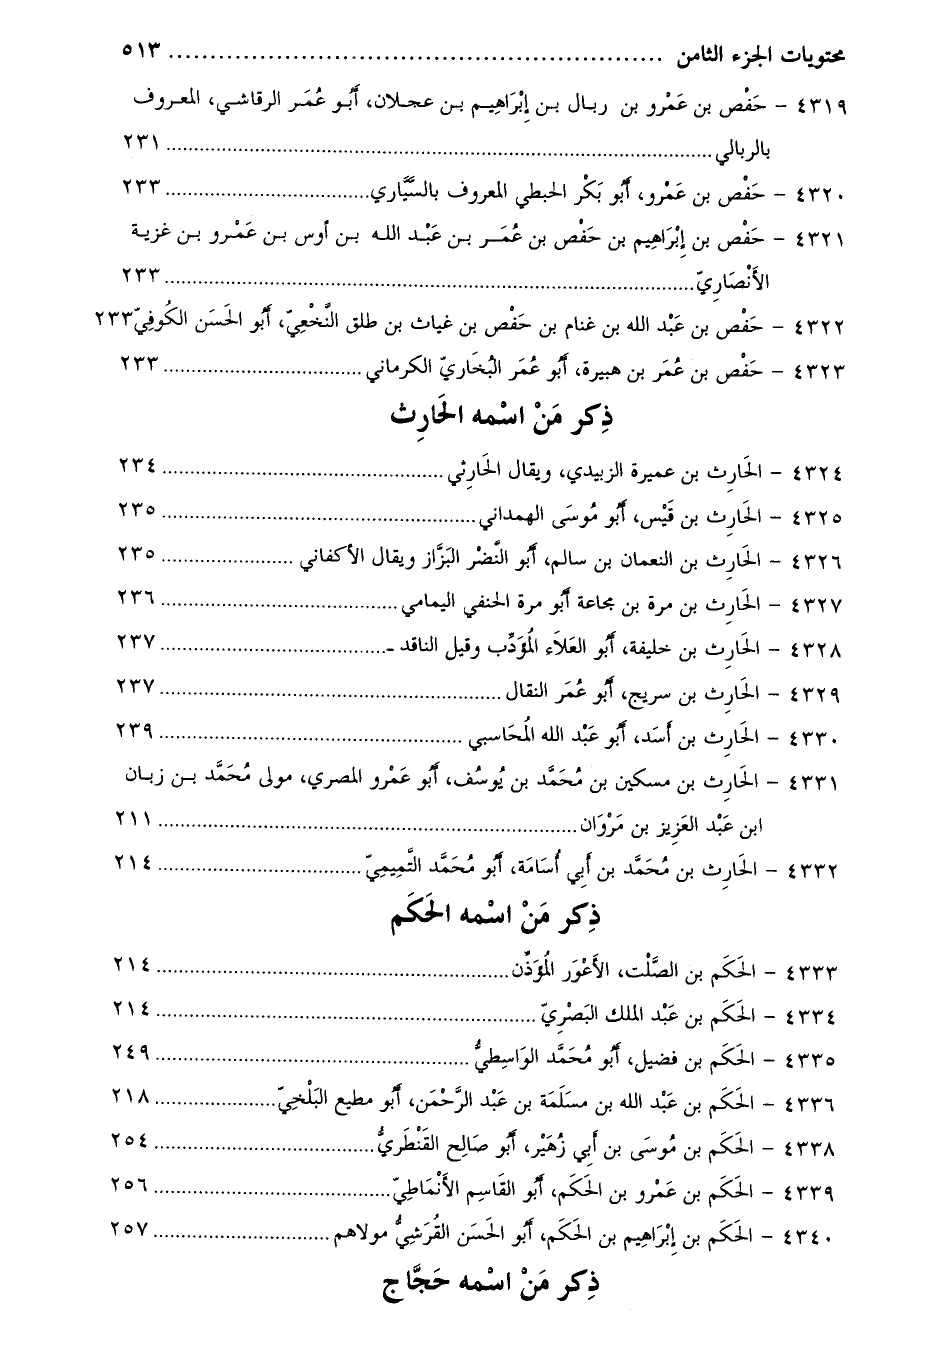 محتويات الجزء الثامن ............................................................ ٥١٣
٤٣١٩ - حَفْص بن عَمْرو بن ربال بـن إِبْرَاهِيـم بـن عجـلان، أَبُـو عُمَـر الرقاشـي، المعـروف
بالربالي ............................................................ ٢٣١
٤٣٢٠ - حَفْص بن عَمْرو، أَبُو بَكْر الحبطي المعروف بالسَّيَّاري ................................ ٢٣٣
٤٣٢١ - حَفْص بن إِبْرَاهِيم بن حَفْص بن عُمَـر بـن عَبْـد اللـه بـن أوس بـن عَمْـرو بـن غزيـة
الأَنْصَارِيّ ............................................................ ٢٣٣
٤٣٢٢ - حَفْص بن عَبْد الله بن غنام بن حَفْص بن غياث بن طلق النَّخْعِيّ، أَبُو الحَسَن الكُوفِيّ ٢٣٣
٤٣٢٣ - حَفْص بن عُمَر بن هبيرة، أَبُو عُمَر البُخَاريّ الكرماني ................................ ٢٣٣
ذِكر مَنْ اسْمه الحَارِث
٤٣٢٤ - الحَارِث بن عميرة الزبيدي، ويقال الحَارِثي ................................ ٢٣٤
٤٣٢٥ - الحَارِث بن قَيْس، أَبُو مُوسَى الهمداني ................................ ٢٣٥
٤٣٢٦ - الحَارِث بن النعمان بن سالم، أَبُو النَّضْر البَزَّاز ويقال الأكفاني ........................ ٢٣٥
٤٣٢٧ - الحَارِث بن مرة بن مجاعة أَبُو مرة الحنفي اليمامي ................................ ٢٣٦
٤٣٢٨ - الحَارِث بن خليفة، أَبُو العَلاَء المُؤَدِّب وقيل الناقد ـ................................ ٢٣٧
٤٣٢٩ - الحَارِث بن سريج، أَبُو عُمَر النقال ................................ ٢٣٧
٤٣٣٠ - الحَارِث بن أَسَد، أَبُو عَبْد الله المُحَاسبي ................................ ٢٣٩
٤٣٣١ - الحَارِث بن مسكين بن مُحَمَّد بن يُوسُف، أَبُو عَمْرو المصري، مولى مُحَمَّد بـن زبـان
ابن عَبْد العَزِيز بن مَرْوَان ................................ ٢١١
٤٣٣٢ - الحَارِث بن مُحَمَّد بن أَبِي أُسَامَة، أَبُو مُحَمَّد التَّمِيمِيّ ................................ ٢١٤
ذِكر مَنْ اسْمه الحَكَم
٤٣٣٣ - الحَكَم بن الصَّلْت، الأَعْوَر المُؤَذِّن ................................ ٢١٤
٤٣٣٤ - الحَكَم بن عَبْد الملك البَصْرِيّ ................................ ٢١٤
٤٣٣٥ - الحَكَم بن فضيل، أَبُو مُحَمَّد الوَاسِطيُّ ................................ ٢٤٩
٤٣٣٦ - الحَكَم بن عَبْد الله بن مسلَمَة بن عَبْد الرَّحْمَن، أَبُو مطيع البَلْخِيّ ........................ ٢١٨
٤٣٣٨ - الحَكَم بن مُوسَى بن أَبِي زُهَيْر، أَبُو صَالِح القَنْطَريُّ ................................ ٢٥٤
٤٣٣٩ - الحَكَم بن عَمْرو بن الحَكَم، أَبُو القَاسِم الأَنْمَاطِيّ ................................ ٢٥٦
٤٣٤٠ - الحَكَم بن إِبْرَاهِيم بن الحَكَم، أَبُو الحَسَن القُرَشِيُّ مولاهم ........................ ٢٥٧
ذِكر مَنْ اسْمه حَجَّاج